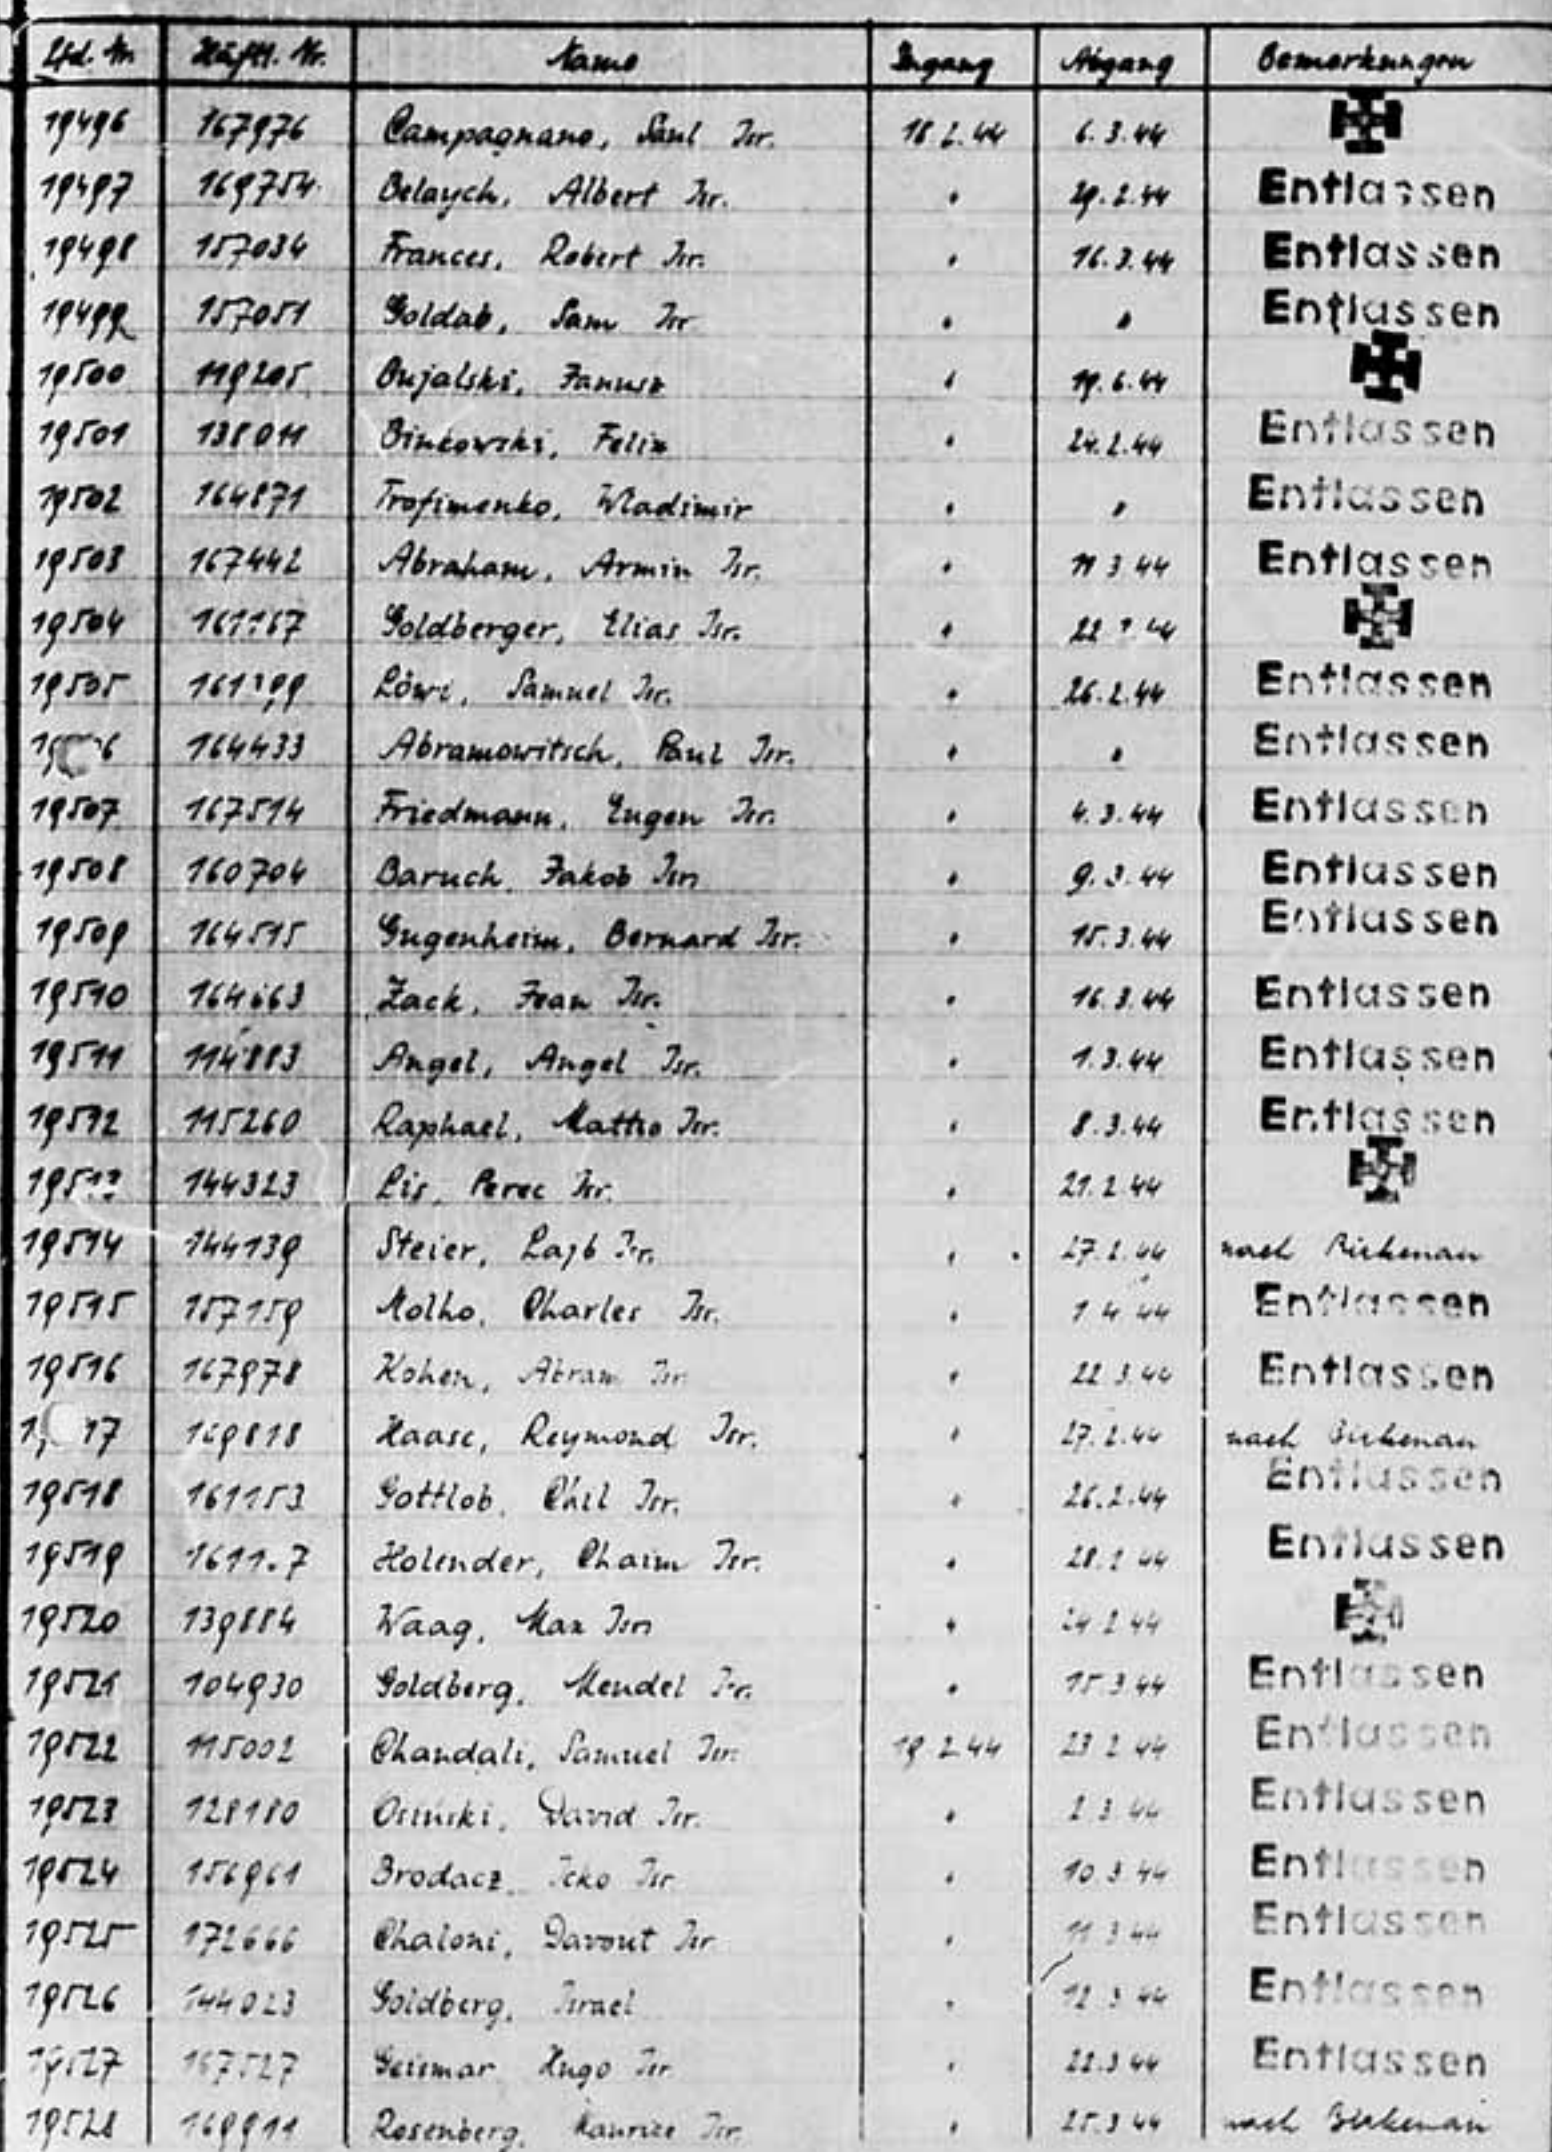 Lfd. Nr. Häftl. Nr. Name Zugang Abgang Bemerkungen
19496 167976 Campagnano, Saul Isr. 18.2.44 6.3.44
19497 169754 Belaych, Albert Isr. " 29.2.44 Entlassen
19498 157034 Frances, Robert Isr. " 16.3.44 Entlassen
19499 157051 Goldab, Sam Isr " " Entlassen
19500 119205 Bujalski, Janusz " 19.6.44
19501 138011 Binkowski, Felix " 24.2.44 Entlassen
19502 164871 Trofimenko, Wladimir " " Entlassen
19503 167442 Abraham, Armin Isr. " 11 3 44 Entlassen
19504 Goldberger, Elias Isr. "
19505 Löwi, Samuel Isr. " 26.2.44 Entlassen
164433 Abramowitsch, Paul Isr. " " Entlassen
19507 167514 Friedmann, Eugen Isr. " 4.3.44 Entlassen
19508 160704 Baruch, Jakob Isr. " 9.3.44 Entlassen
19509 164515 Gugenheim, Bernard Isr. " 15.3.44 Entlassen
19510 164663 Zack, Jean Isr. " 16.3.44 Entlassen
19511 114883 Angel, Angel Isr. " 1.3.44 Entlassen
19512 115260 Raphael, Matteo Isr. " 8.3.44 Entlassen
144323 Lis, Perec Isr. " 21.2.44
19514 144139 Steier, Lajb Isr. " 27.2.44 nach Birkenau
19515 157159 Molho, Charles Isr. " 1 4 44 Entlassen
19516 167978 Kohen, Abram Isr " 22 3.44 Entlassen
Haase, Reymond Isr. " 27.2.44 nach Birkenau
19518 161153 Gottlob, Chil Isr. " 26.2.44 Entlassen
19519 Holender, Chaim Isr. " 28.2 44 Entlassen
19520 139884 Waag, Max Isr. " 24 2 44
19521 104930 Goldberg, Mendel Isr. " 15.3 44 Entlassen
19522 115002 Chandali, Samuel Isr. 19 2.44 23 2 44 Entlassen
19523 128180 Osinski, David Isr. " 2 3 44 Entlassen
19524 156961 Brodacz, Icko Isr " 10.3 44 Entlassen
19525 172666 Chaloni, Davout Isr " 11 3 44 Entlassen
19526 144023 Goldberg, Israel " 12 3 44 Entlassen
19527 167527 Geismar Hugo Isr " 22.3 44 Entlassen
19528 169911 Rosenberg, Maurice Isr. " 25.3 44 nach Birkenau